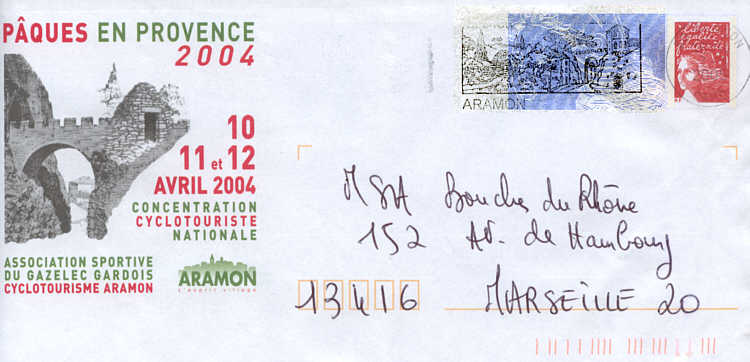 PÂQUES EN PROVENCE
2004
10
11 et 12
AVRIL 2004
CONCENTRATION
CYCLOTOURISTE
NATIONALE
ASSOCIATION SPORTIVE
DU GAZELEC GARDOIS
CYCLOTOURISME ARAMON
ARAMON
L'esprit village
ARAMON
liberté
égalité
fraternité
MSA Bouches du Rhône
152 AV. de Hambourg
13416 MARSEILLE 20